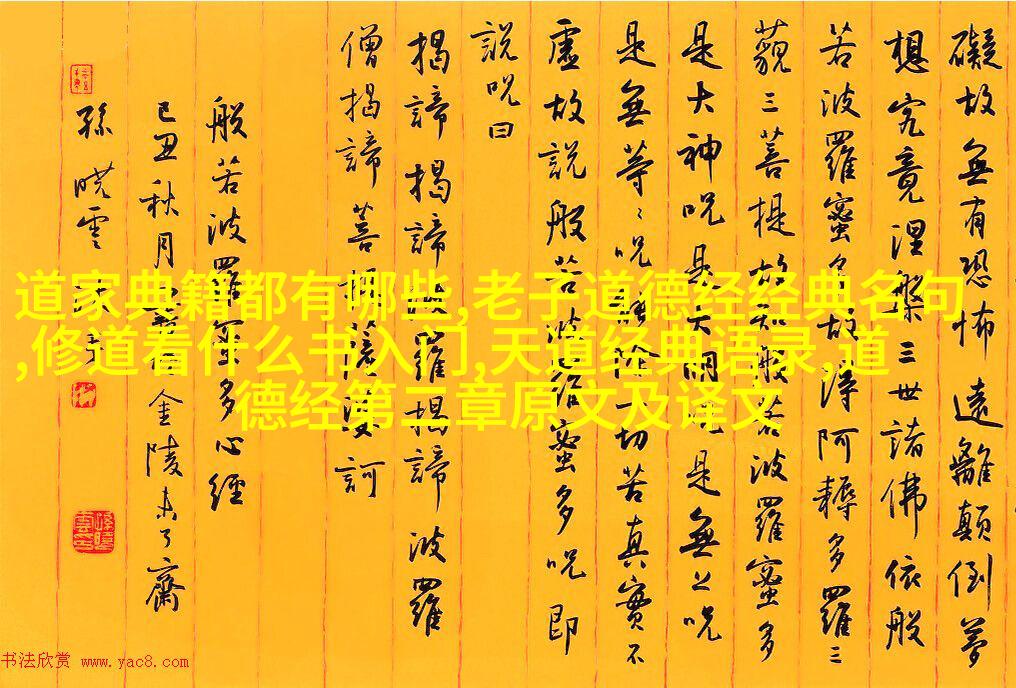 礙故無有恐怖遠離顛倒夢
想究竟涅槃三世諸佛依般
若波羅蜜多故得阿耨多羅三
藐三菩提故知般若波羅蜜多
是大神呪是大明呪是無上呪
是無等〻呪能除一切苦真實不
虛故說般若波羅蜜多呪即
說呪曰
揭諦揭諦波羅揭諦波羅
僧揭諦菩提薩婆訶
般若波羅蜜多心經
己丑秋月金陵未了齋
孫曉雲
道家典籍都有哪些,老子道德经经典名句
,修道看什么书入门,天道经典语录,道
德经第二章原文及译文
书法欣赏 www.yac8.com